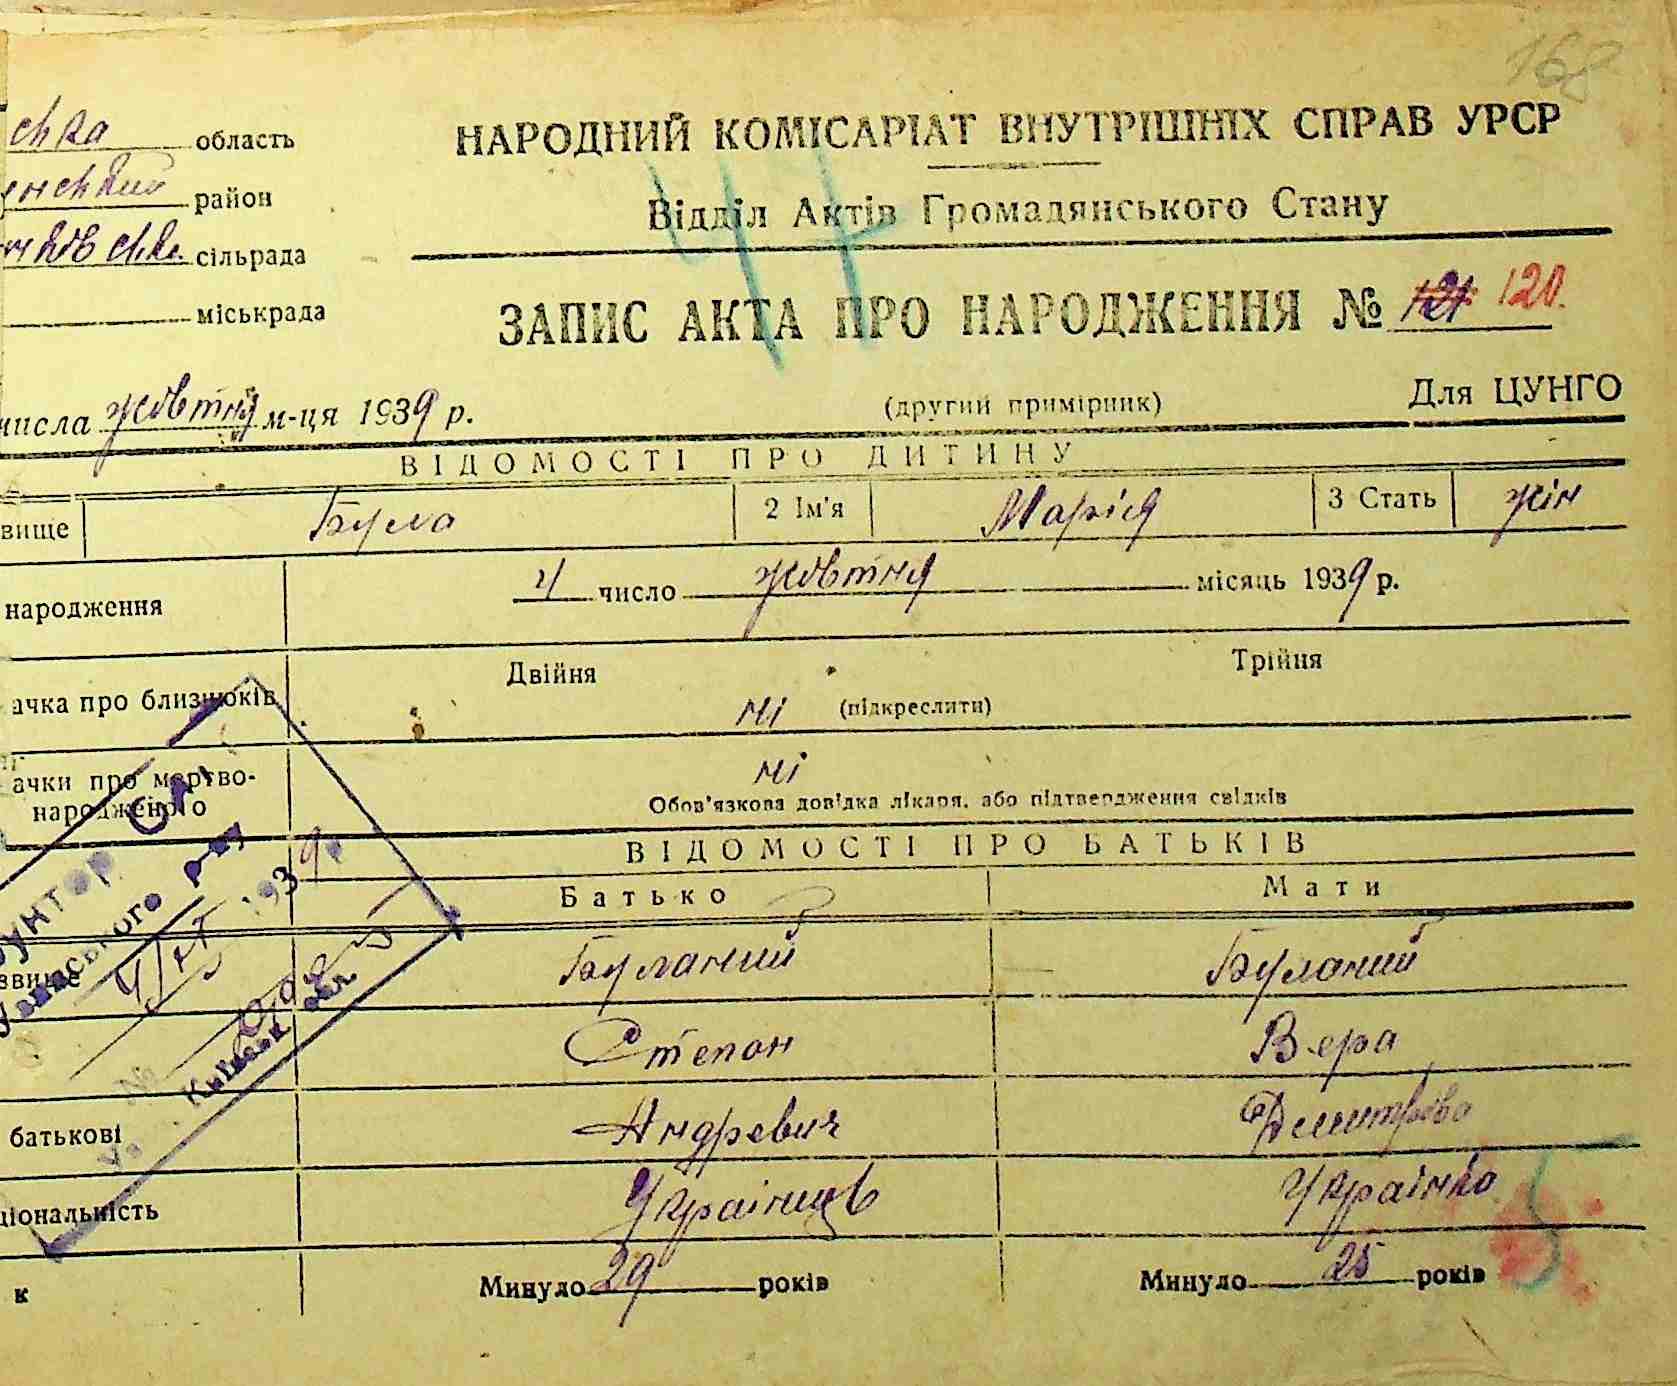 168
ска область
НАРОДНИЙ КОМІСАРІАТ ВНУТРІШНІХ СПРАВ УРСР
енский район
Відділ Актів Громадянського Стану
сільрада
міськрада
47
ЗАПИС АКТА ПРО НАРОДЖЕННЯ № 121 120.
числа жовтня м-ця 1939 р.
(другий примірник)
Для ЦУНГО
ВІДОМОСТІ ПРО ДИТИНУ
звище Була 2 Ім'я Марія 3 Стать жін
народження 4 число жовтня місяць 1939 р.
ачка про близнюків Двійня Трійня
ні (підкреслити)
ачки про мертво-
народженого ні
Обов'язкова довідка лікаря, або підтвердження свідків
ВІДОМОСТІ ПРО БАТЬКІВ
Батько Мати
звище Буланий Буланий
Степон Вера
батькові Андревич Дмитрова
ціональність Українцев Українко
к Минуло 29 років Минуло 25 років
р-ну
1939 р
№
Київськ обл